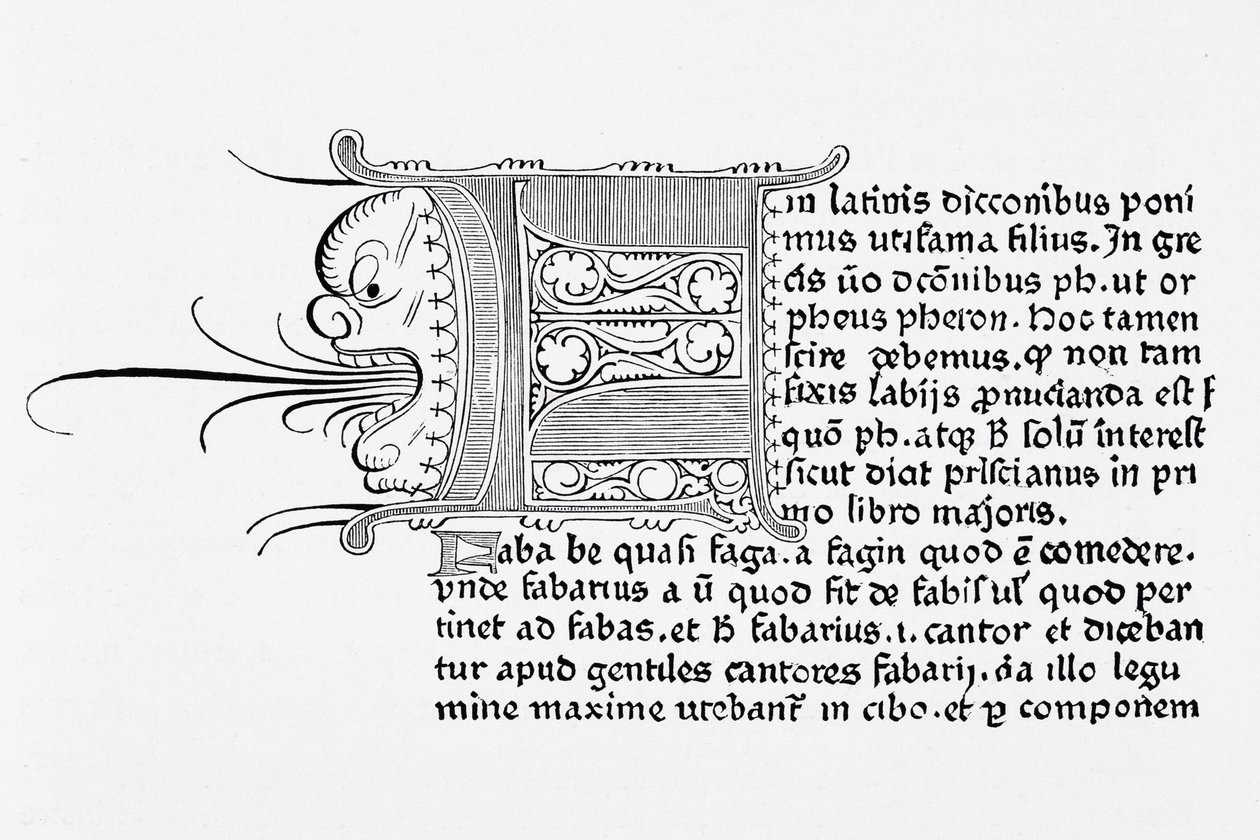 F in latinis dicconibus poni
mus ut. fama filius. In gre
cis ūo dcōnibus ph. ut or
pheus pheron. Hoc tamen
scire debemus. ꝙ non tam
fixis labijs ꝓnucianda est f
quō ph. atqꝫ B solū interest
sicut dicit priscianus in pri
mo libro majoris.
Faba be quasi faga. a fagin quod ē comedere.
vnde fabarius a ū quod fit de fabis ul' quod per
tinet ad fabas. et B fabarius. i. cantor et diceban
tur apud gentiles cantores fabarij. illo legu
mine maxime utebant᷑ in cibo. et ꝑ componem